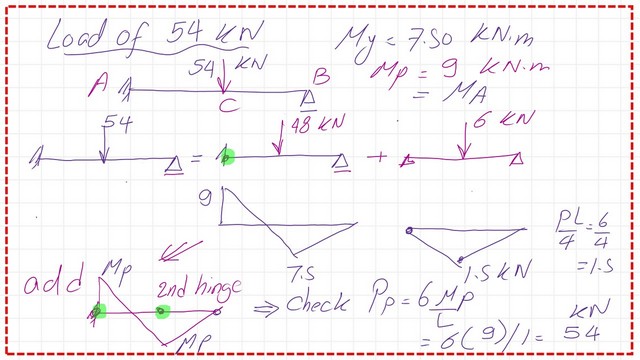 Load of 54 KN
My = 7.50 KN.m
54 KN
Mp = 9 KN.m
A
B
= MA
C
54
48 KN
6 KN
=
+
9
7.5
1.5 KN
PL/4 = 6/4
= 1.5
add
Mp
2nd hinge
Mp
⇒ Check Pp = 6Mp/L
= 6(9)/1 = 54 KN